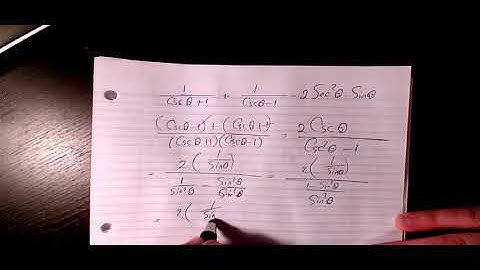 1/(Cscθ+1) + 1/(Cscθ-1) = 2 Sec²θ Sinθ
((Cscθ-1) + (Cscθ+1))/((Cscθ+1)(Cscθ-1)) = 2Cscθ/(Csc²θ-1)
= 2(1/Sinθ)/(1/Sin²θ - Sin²θ/Sin²θ) = 2(1/Sinθ)/((1-Sin²θ)/Sin²θ)
= 2(1/Sin